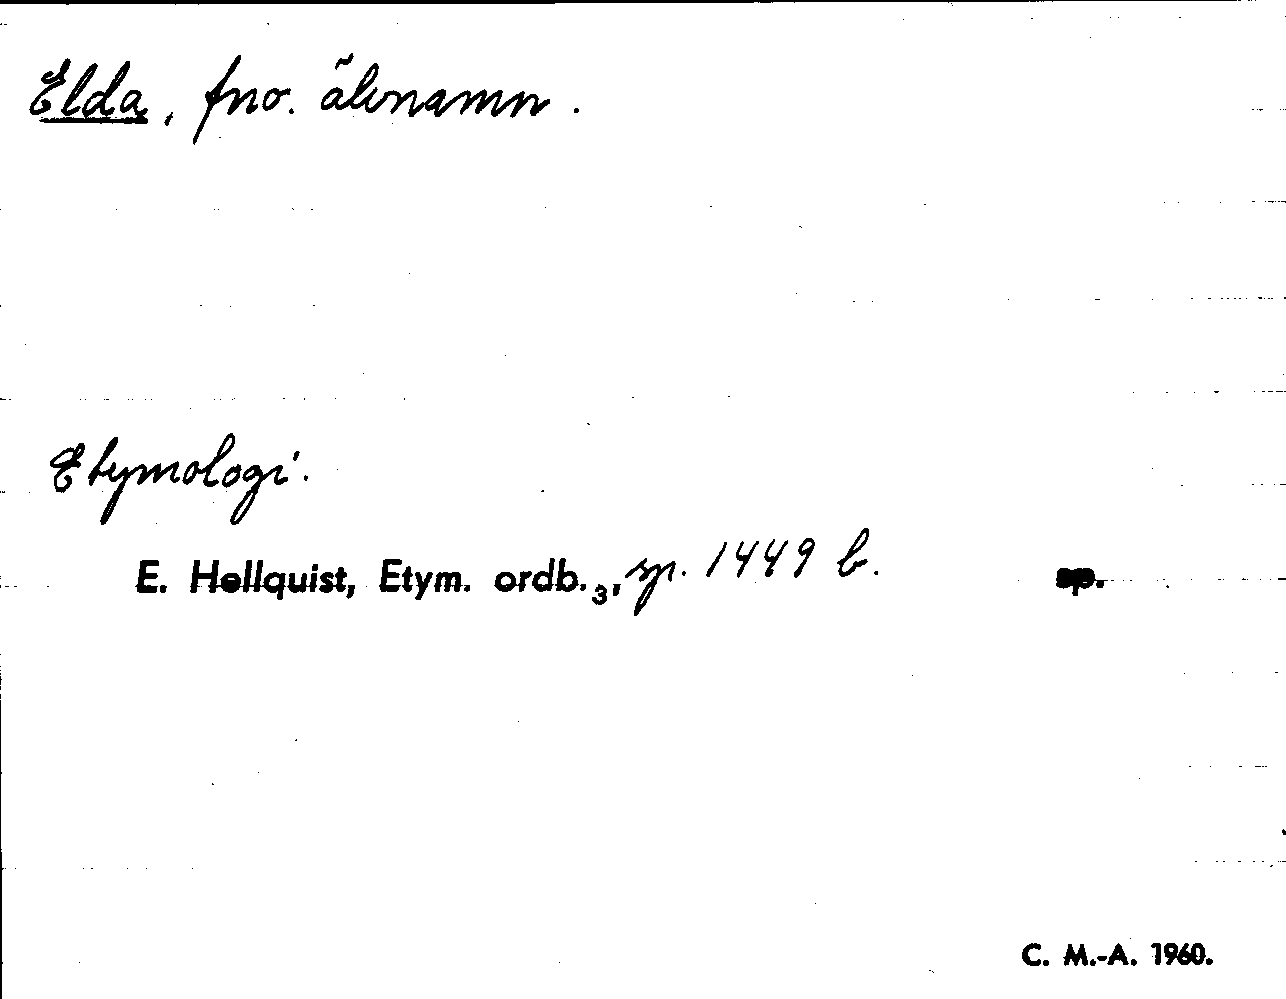 Elda, fno. älvnamn.
Etymologi.
E. Hellquist, Etym. ordb.₃, sp. 1449 b. sp.
C. M.-A. 1960.